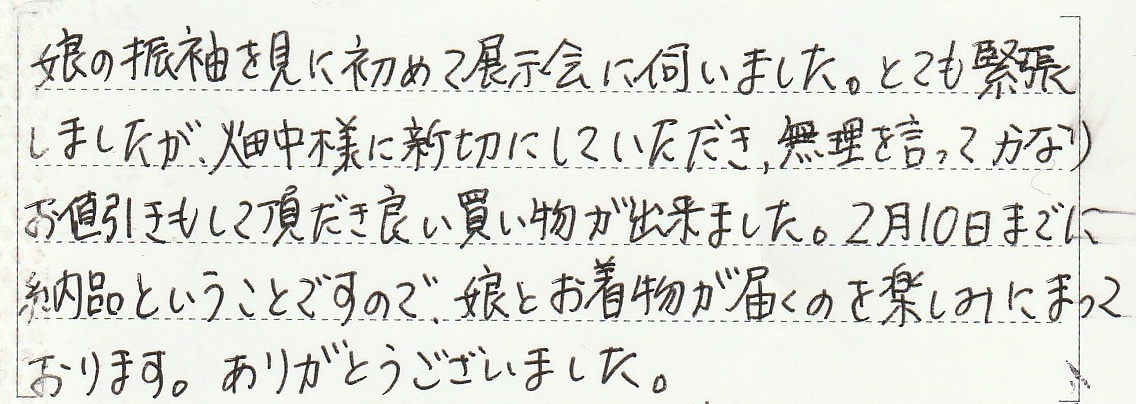 娘の振袖を見に初めて展示会に伺いました。とても緊張
しましたが、畑中様に新切にしていただき、無理を言ってかなり
お値引きもして頂だき良い買い物が出来ました。2月10日までに
納品ということですので、娘とお着物が届くのを楽しみにまって
おります。ありがとうございました。